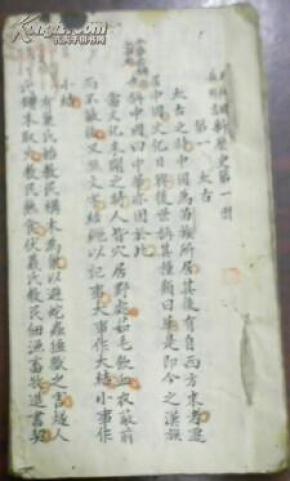 歷史第一冊
第一 太古
太古之時中國為苗族所居其後有自西方來者逐
中國文化日興後世誇其種類曰華是即今之漢族
稱中國曰中華亦因於此
當文化未開之時人皆穴居野處茹毛飲血衣蔽前
而不蔽後又無文字結繩以記事大事作大結小事作
小結
有巢氏始教民構木為巢以避蛇蟲猛獸之害燧人
氏鑽木取火教民熟食伏羲氏教民佃漁畜牧造書契